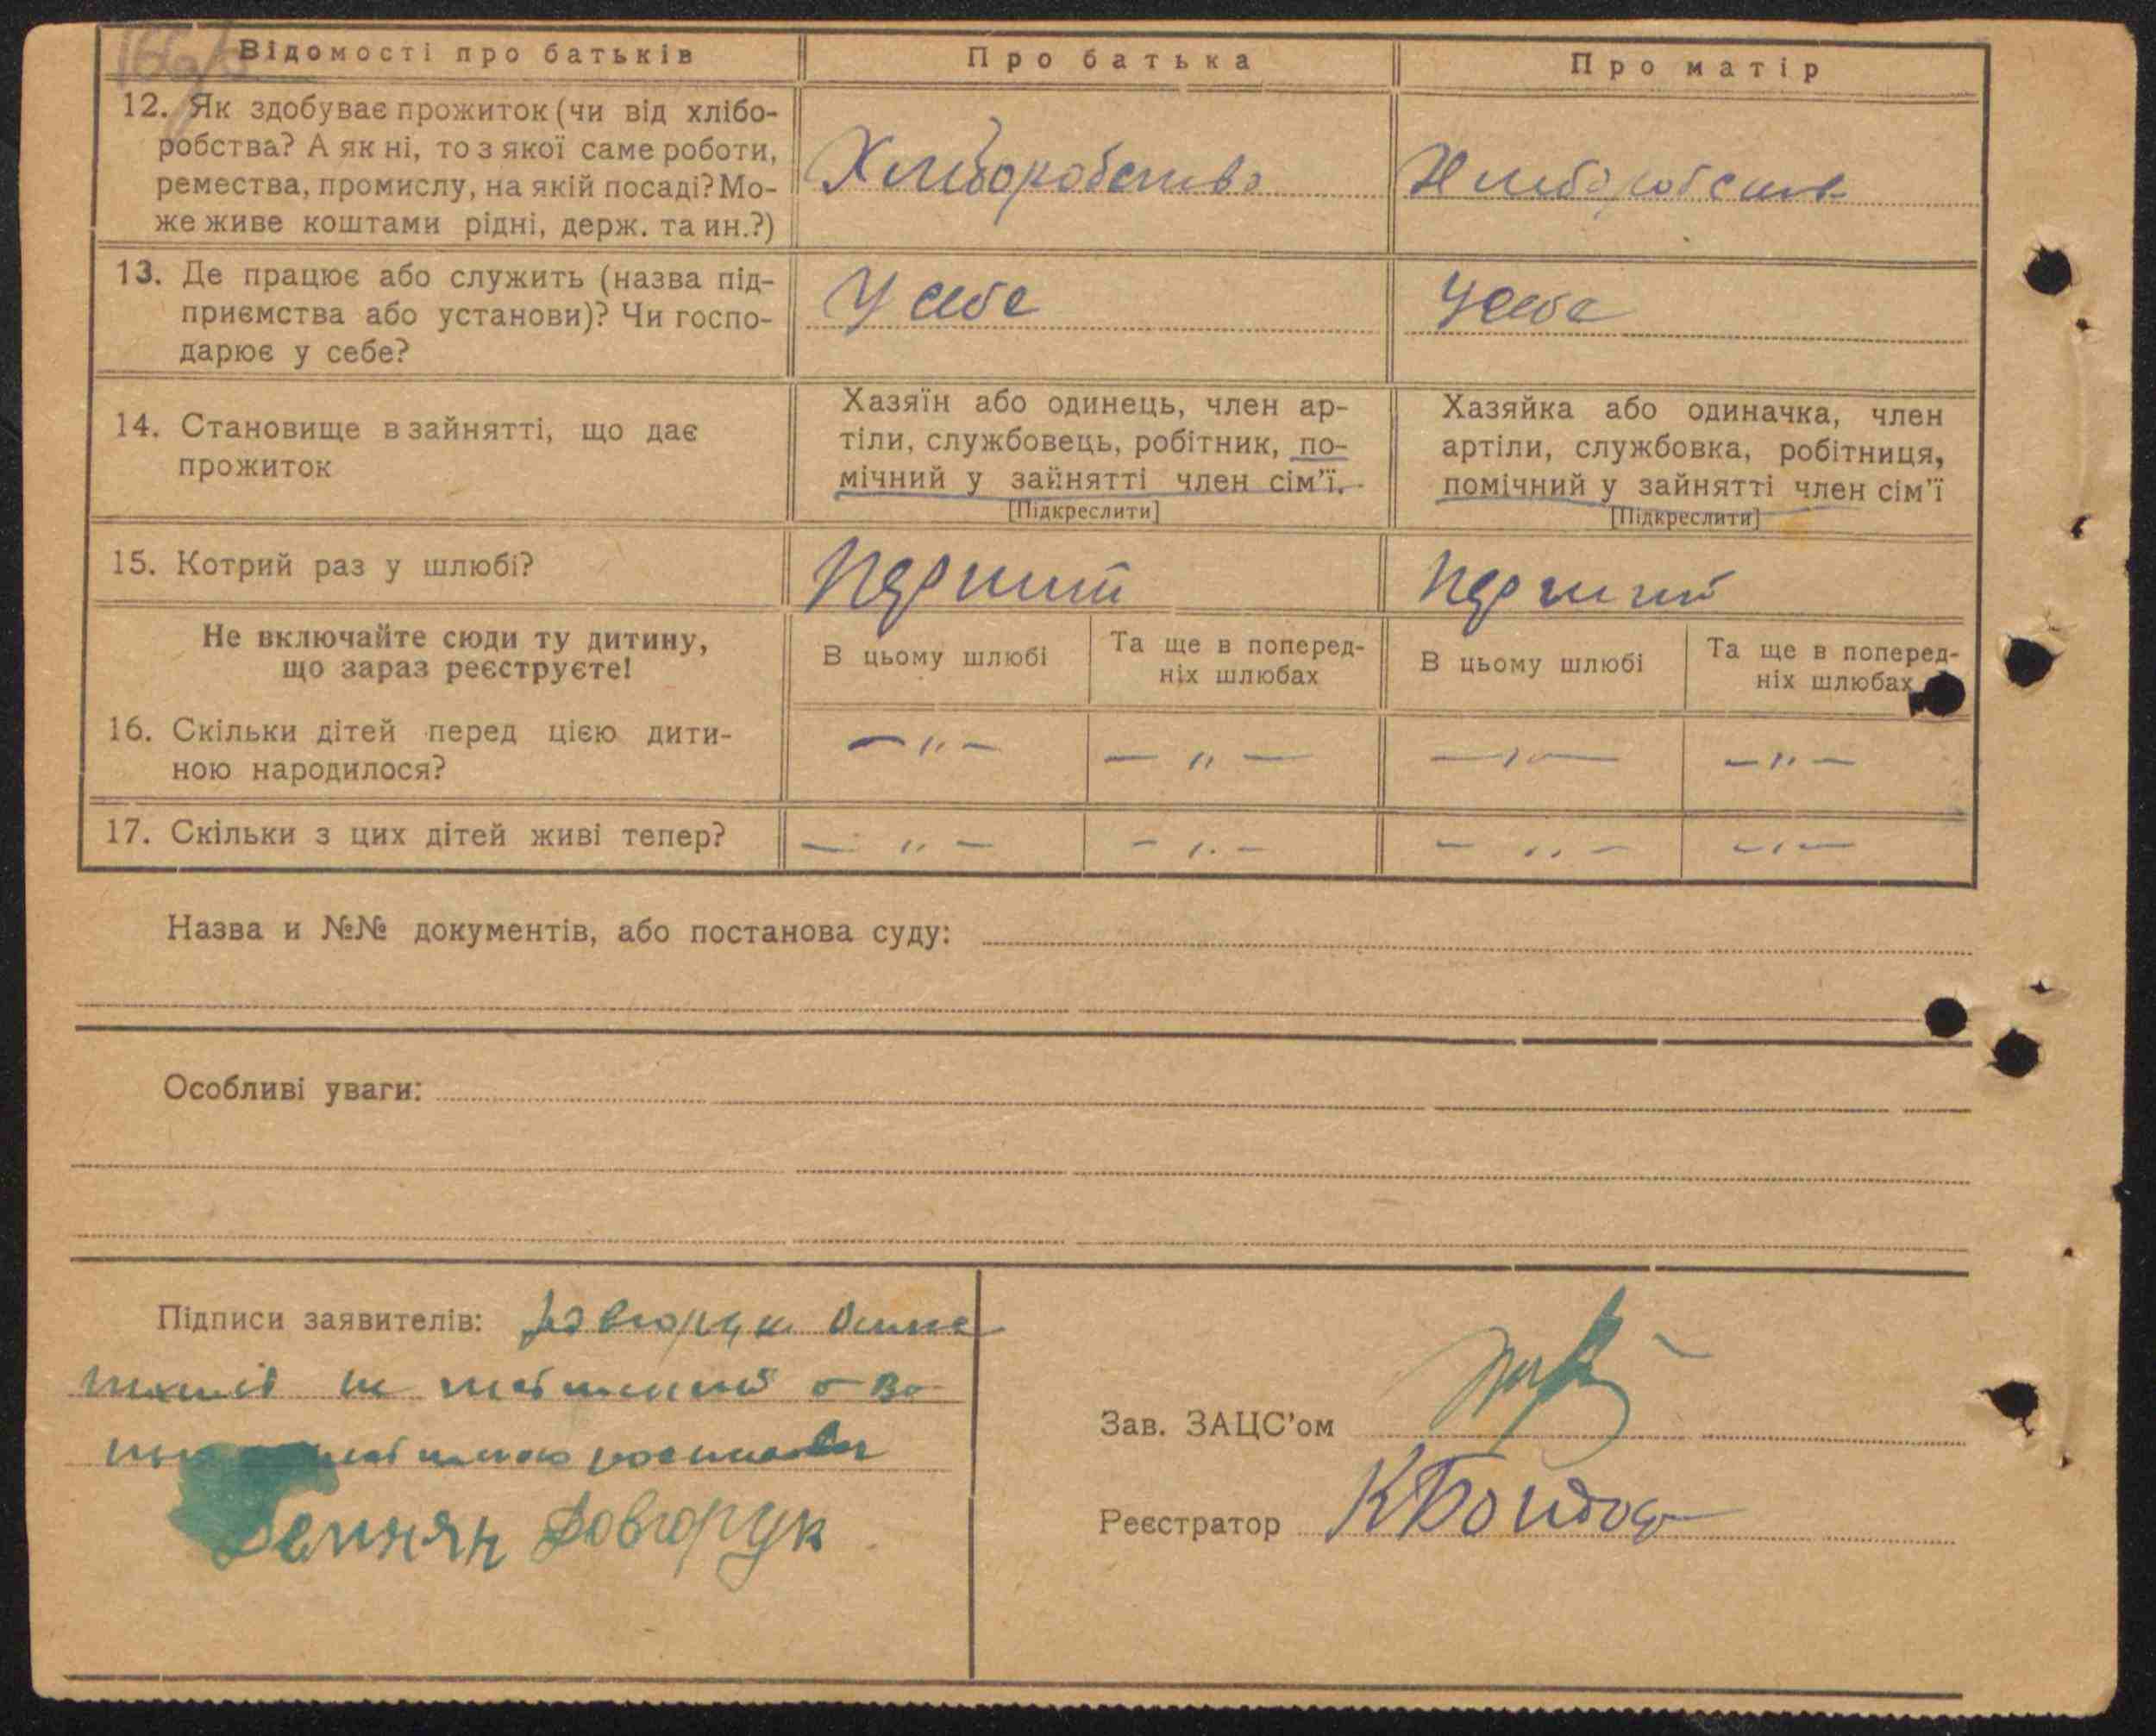 Відомості про батьків
Про батька
Про матір
12. Як здобуває прожиток (чи від хлібо-
робства? А як ні, то з якої саме роботи,
ремества, промислу, на якій посаді? Мо-
же живе коштами рідні, держ. та ин.?)
Хліборобство
Хліборобств
13. Де працює або служить (назва під-
приємства або установи)? Чи госпо-
дарює у себе?
У себе
У себе
14. Становище в зайнятті, що дає
прожиток
Хазяїн або одинець, член ар-
тіли, службовець, робітник, по-
мічний у зайнятті член сім'ї.
[Підкреслити]
Хазяйка або одиначка, член
артіли, службовка, робітниця,
помічний у зайнятті член сім'ї
[Підкреслити]
15. Котрий раз у шлюбі?
Перший
Перший
Не включайте сюди ту дитину,
що зараз реєструєте!
В цьому шлюбі
Та ще в поперед-
ніх шлюбах
В цьому шлюбі
Та ще в поперед-
ніх шлюбах
16. Скільки дітей перед цією дити-
ною народилося?
— " —
— " —
— " —
— " —
17. Скільки з цих дітей живі тепер?
— " —
— " —
— " —
— " —
Назва и №№ документів, або постанова суду:
Особливі уваги:
Підписи заявителів: Довгорук
Демян Довгорук
Зав. ЗАЦС'ом
Реєстратор